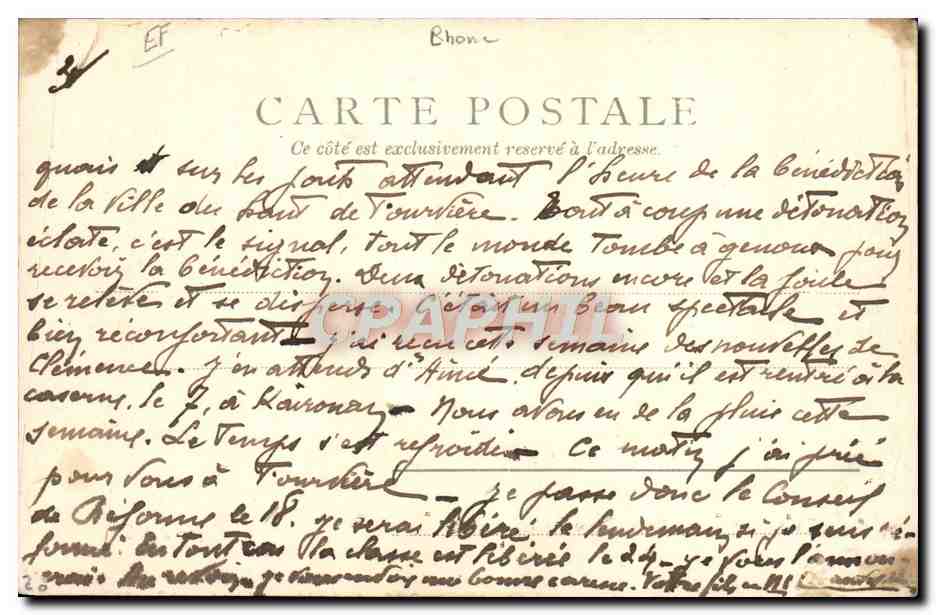 EF
Rhone
CARTE POSTALE
Ce côté est exclusivement reservé à l'adresse.
quais et sur les ponts attendant l'heure de la bénédiction
de la Ville du haut de Fourvière. Tout à coup une détonation
éclate, c'est le signal, tout le monde tombe à genoux pour
recevoir la bénédiction. Deux détonations encore et la foule
se relève et se disperse C'était un beau spectacle et
bien réconfortant J'ai reçu cette semaine des nouvelles de
Clémence. J'en attends d'Aimé, depuis qu'il est rentré à la
caserne, le 7, à Kairouan - Nous avons eu de la pluie cette
semaine. Le temps s'est refroidi - Ce matin j'ai prié
pour vous à Fourvière - Je passe donc le Conseil
de Réforme le 18. Je serai libéré le lendemain si je suis ré-
formé. En tout cas la classe est libérée le 24 - je vous l'annon
cerais je vous envoie une bonne caresse. Votre fils
CPAPHIL